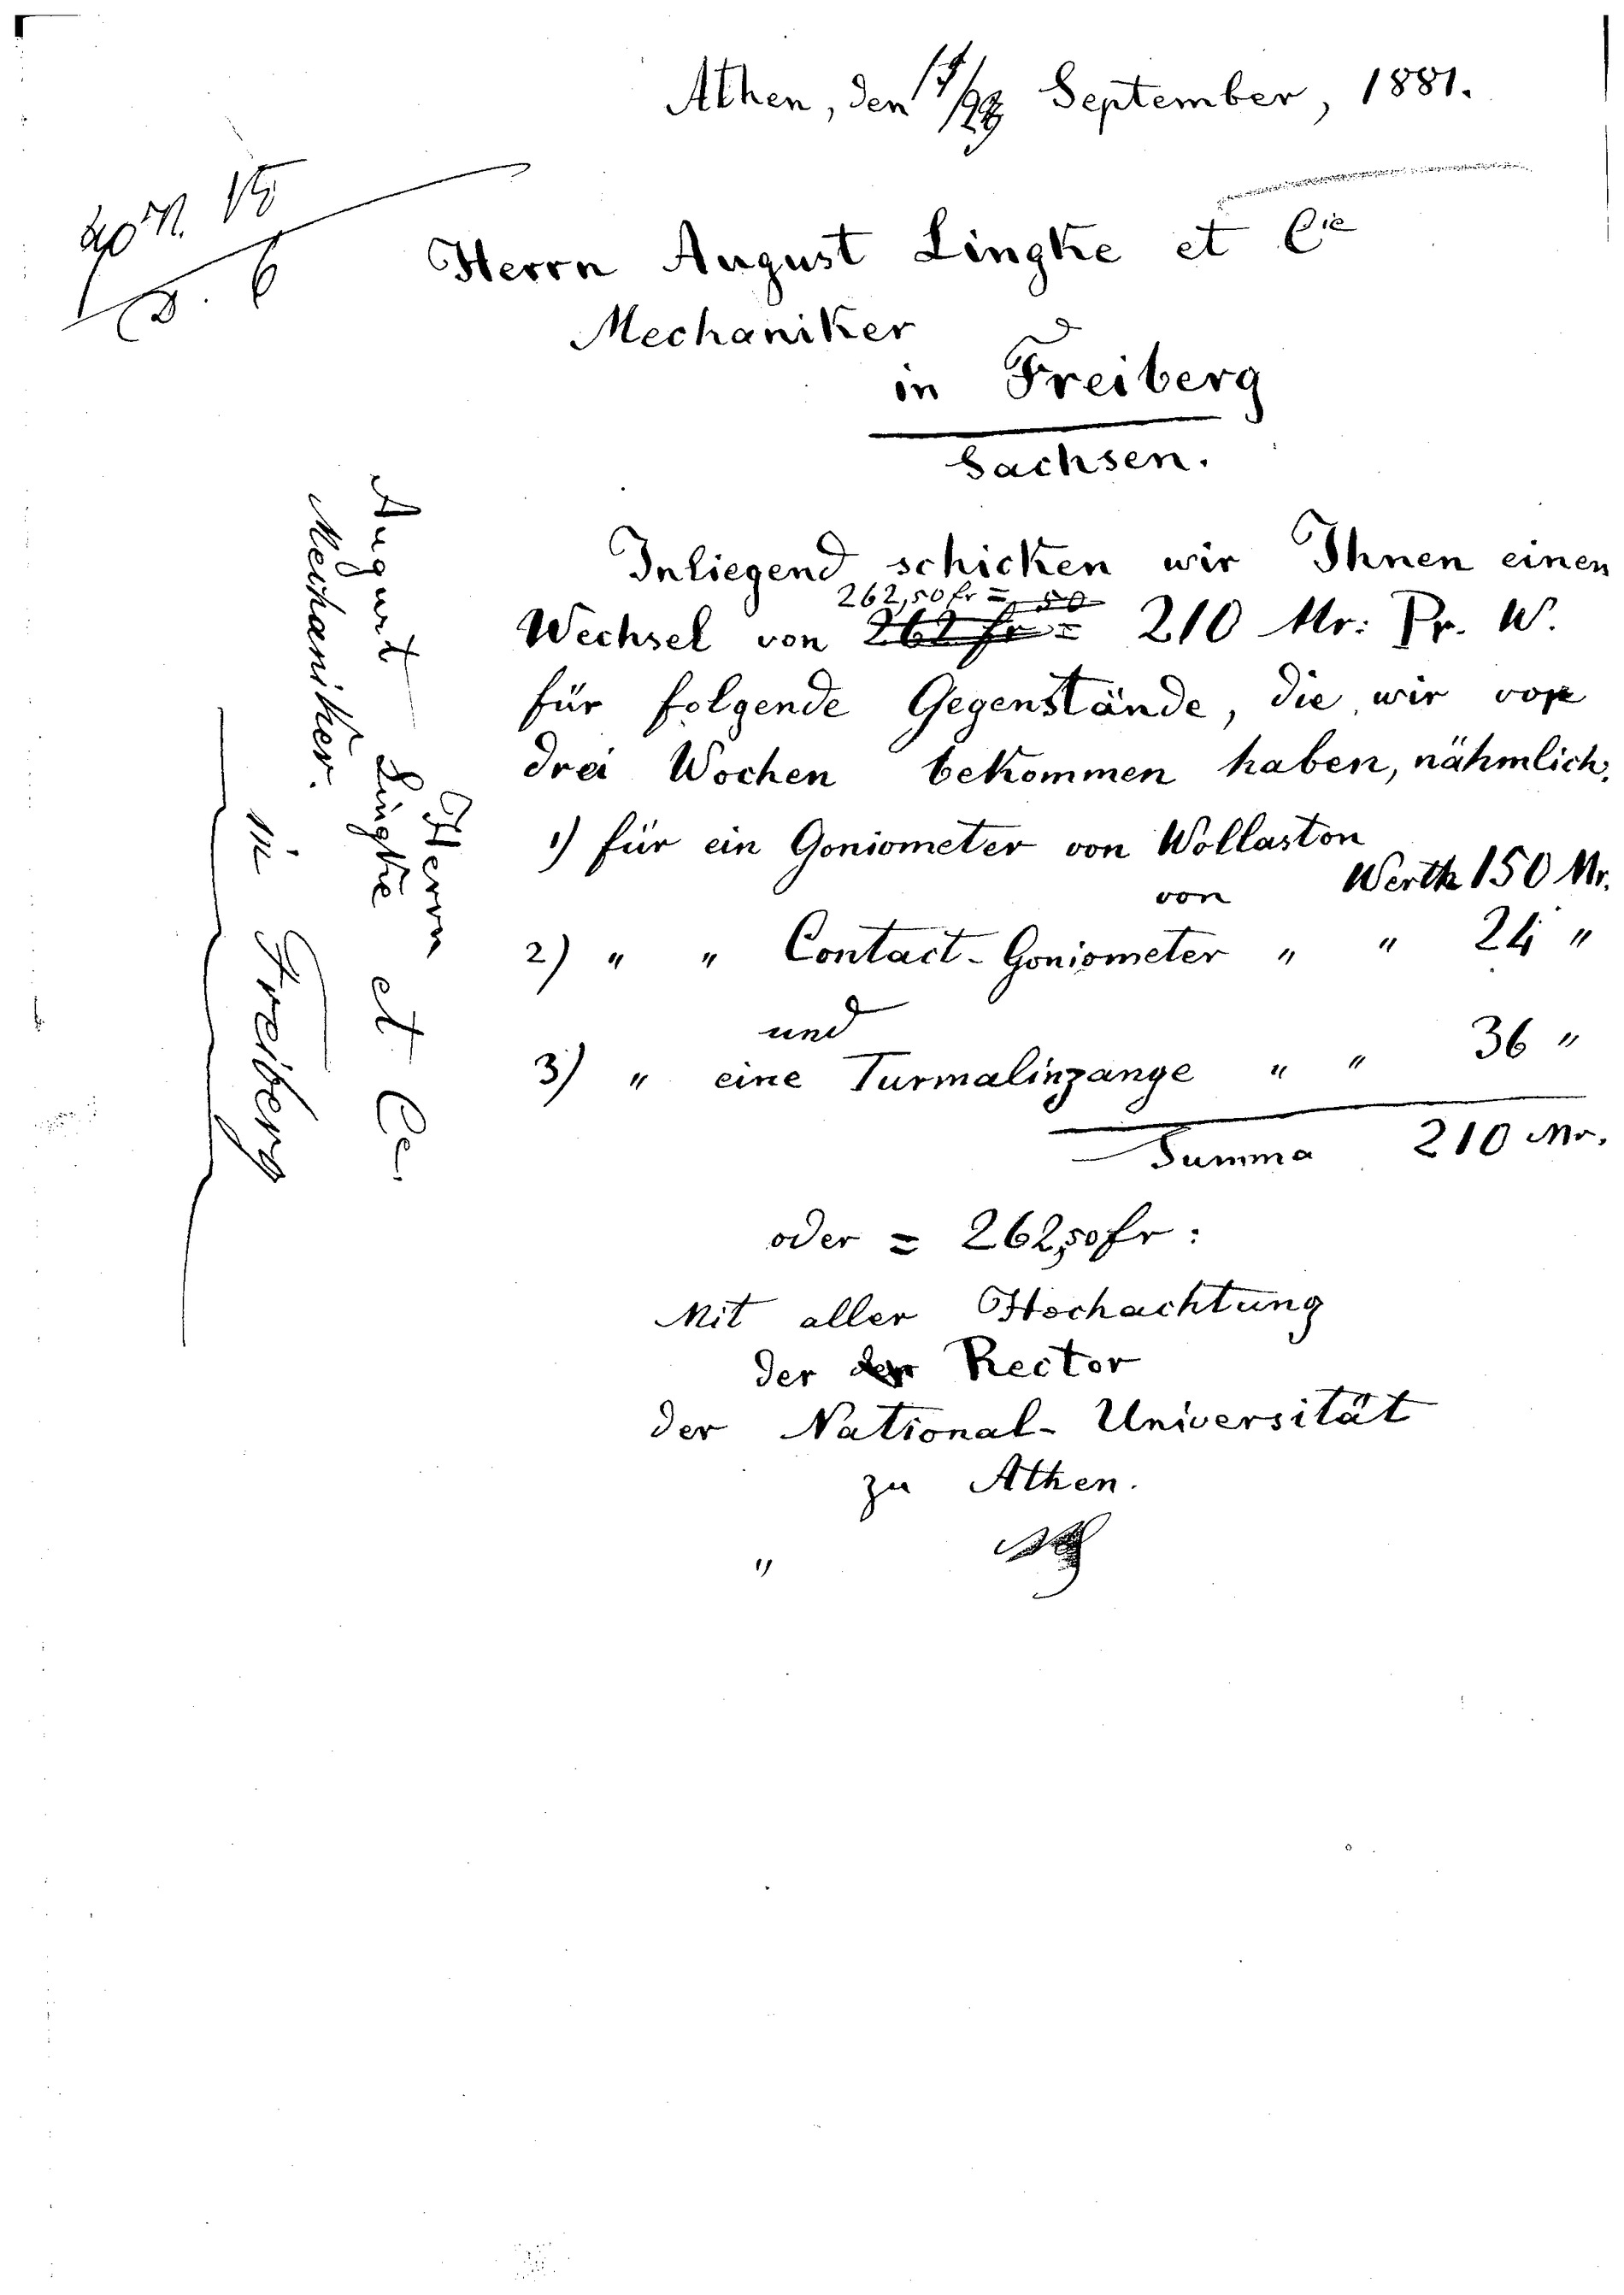 Athen, den 17/29 September, 1881.
Herrn August Lingke et Cie
Mechaniker
in Freiberg
Sachsen.
Inliegend schicken wir Ihnen einen
262,50 fr = 50
Wechsel von 262 fr = 210 Mr: Pr. W.
für folgende Gegenstände, die wir vor
drei Wochen bekommen haben, nähmlich:
1) für ein Goniometer von Wollaston
von Werth 150 Mr.
2) " " Contact-Goniometer " " 24 "
und
3) " eine Turmalinzange " " 36 "
Summa 210 Mr.
oder = 262,50 fr:
Mit aller Hochachtung
der der Rector
der National-Universität
zu Athen.
"
Herrn
August Lingke et Ce.
Mechaniker.
in Freiberg